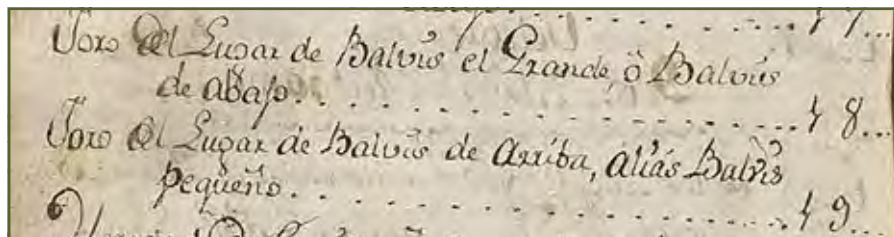 Foro del Lugar de Balvis el Grande, ò Balvis
de abajo. . . . . . . . . . . . . . . . 48...
Foro del Lugar de Balvis de Arriba, aliàs Balvis
pequeño. . . . . . . . . . . . . . . . 49...